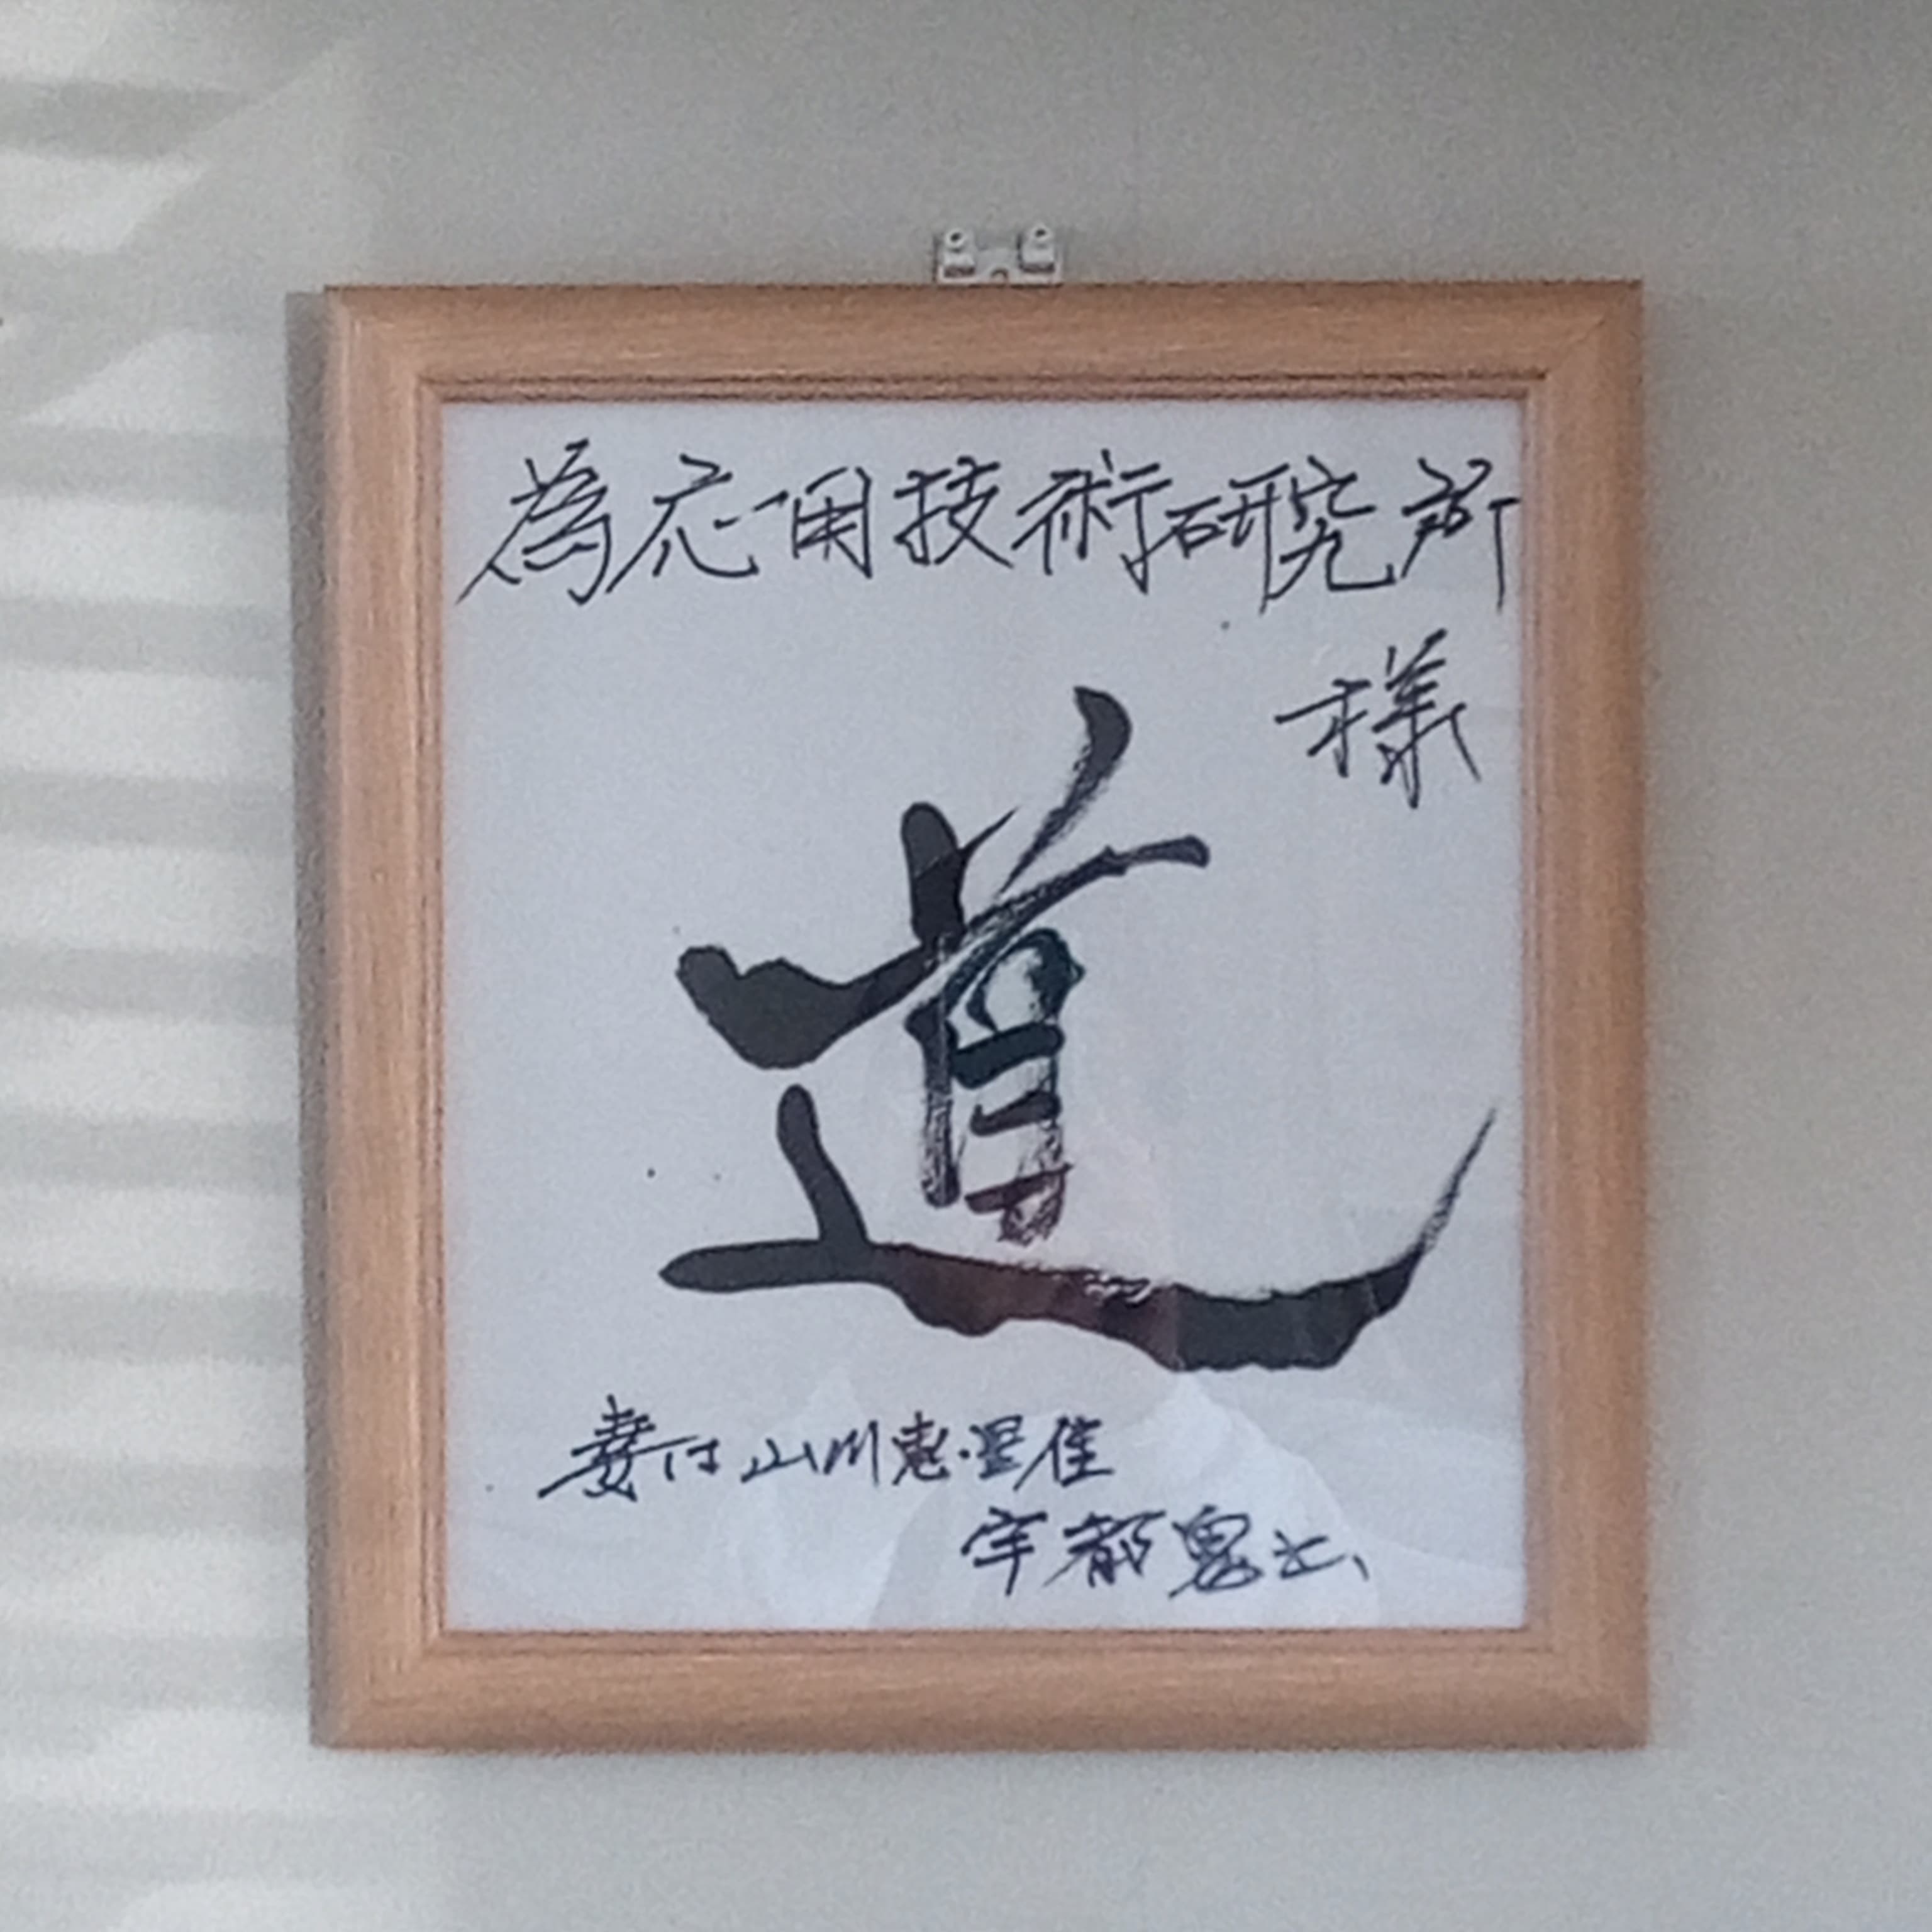 為応用技術研究所
様
道
妻は山川恵里佳
宇都鬼